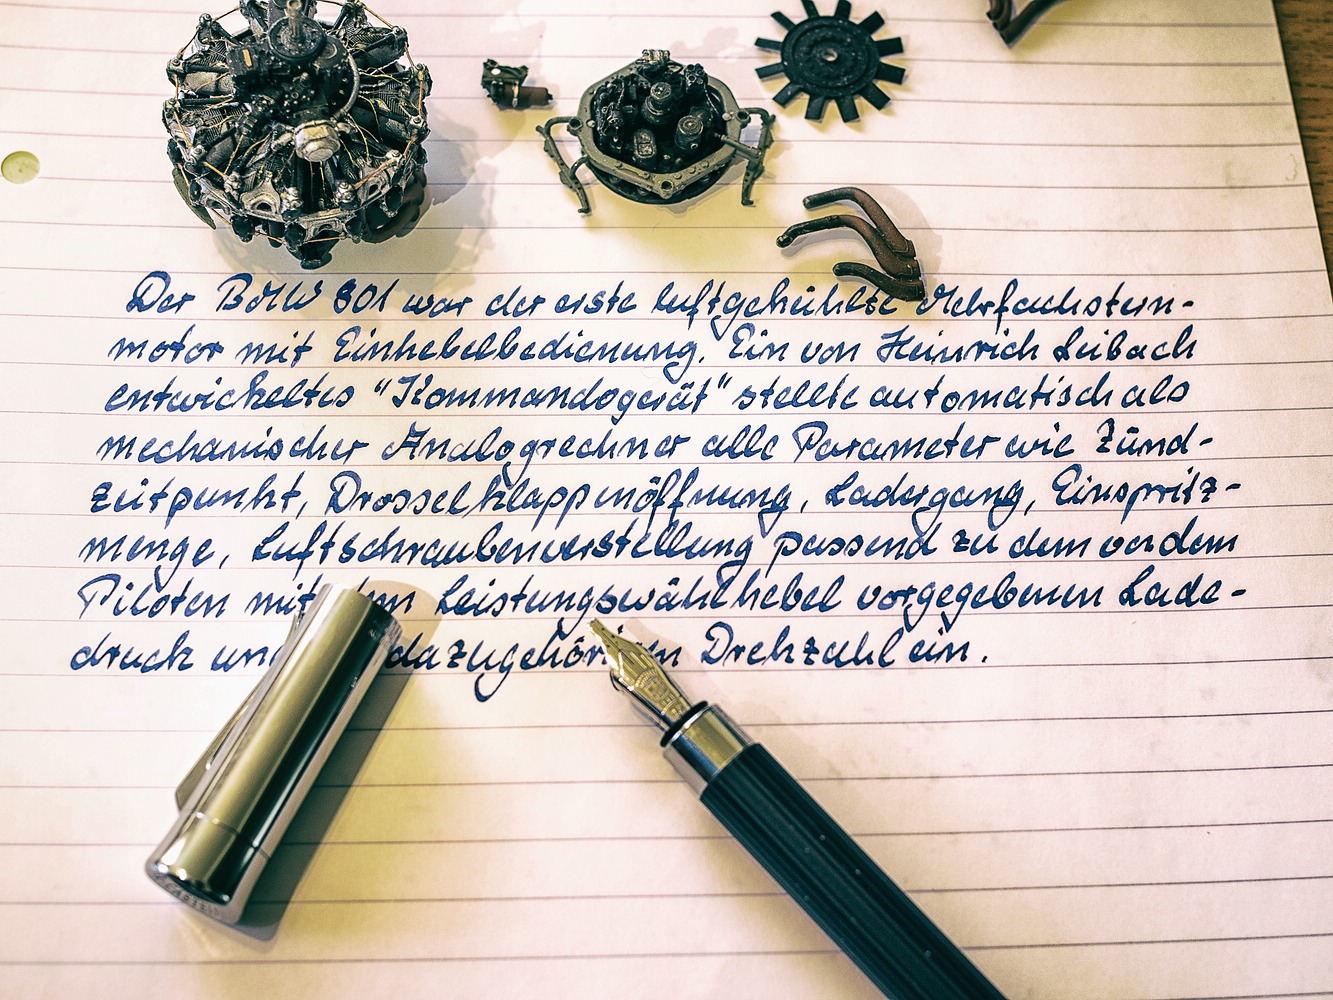 Der BMW 801 war der erste luftgekühlte Mehrfachstern-
motor mit Einhebelbedienung. Ein von Heinrich Leibach
entwickeltes "Kommandogerät" stellte automatisch als
mechanischer Analogrechner alle Parameter wie Zünd-
zeitpunkt, Drosselklappenöffnung, Ladergang, Einspritz-
menge, Luftschraubenverstellung passend zu dem von dem
Piloten mit dem Leistungswählhebel vorgegebenen Lade-
druck und dazugehörigen Drehzahl ein.